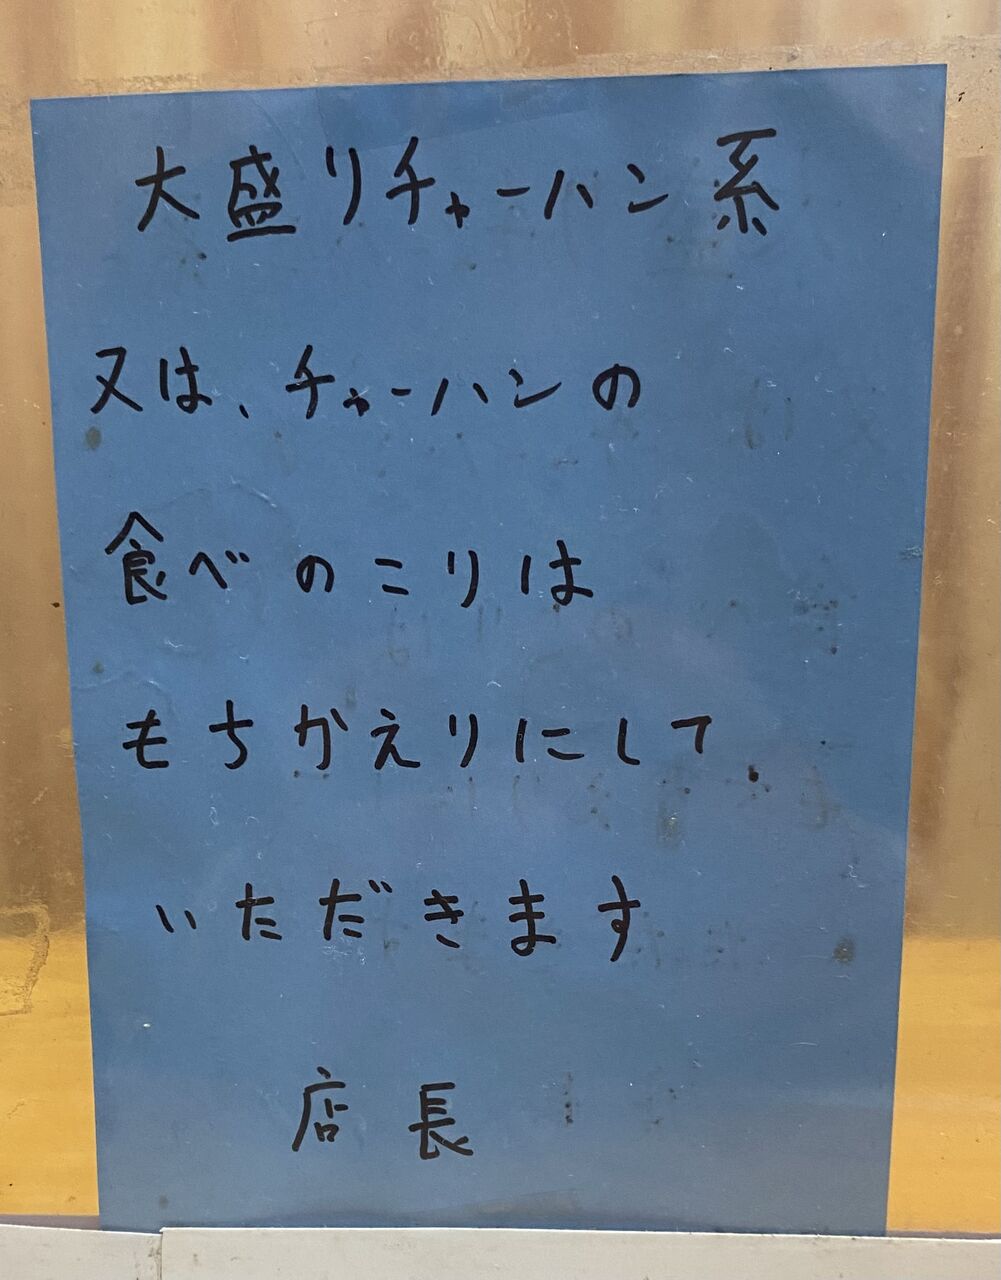 大盛りチャーハン系
又は、チャーハンの
食べのこりは
もちかえりにして
いただきます
店長